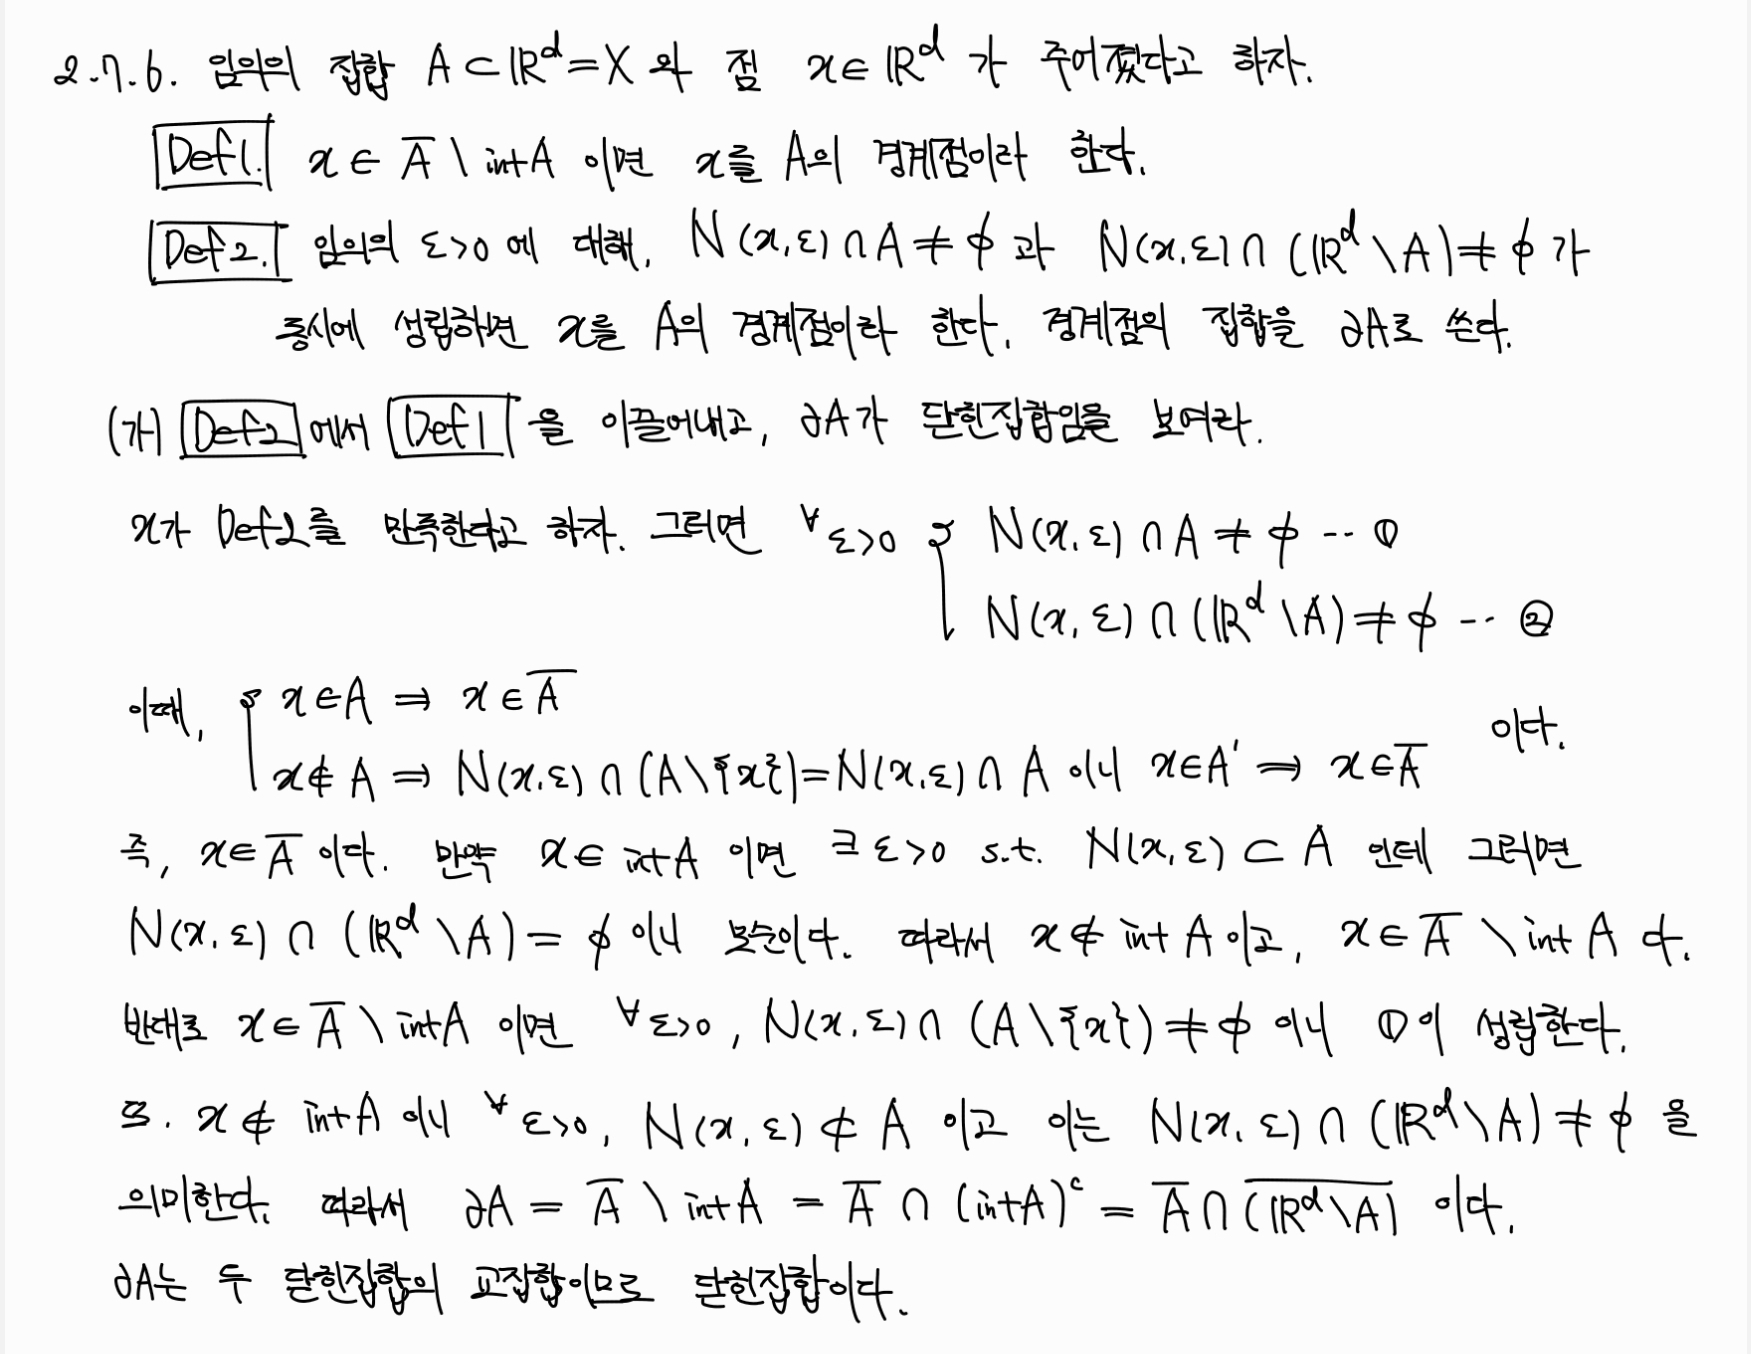 2.7.6. 임의의 집합 A⊂ℝᵈ=X 와 점 x∈ℝᵈ 가 주어졌다고 하자.
Def1. x∈A̅\intA 이면 x를 A의 경계점이라 한다.
Def2. 임의의 ε>0 에 대해, N(x,ε)∩A≠∅ 과 N(x,ε)∩(ℝᵈ\A)≠∅ 가
동시에 성립하면 x를 A의 경계점이라 한다. 경계점의 집합을 ∂A로 쓴다.
(가) Def2 에서 Def1 을 이끌어내고, ∂A가 닫힌집합임을 보여라.
x가 Def2를 만족한다고 하자. 그러면 ∀ε>0 { N(x,ε)∩A≠∅ ··· ①
N(x,ε)∩(ℝᵈ\A)≠∅ ··· ②
이때, { x∈A ⇒ x∈A̅
x∉A ⇒ N(x,ε)∩(A\{x})=N(x,ε)∩A 이니 x∈A' ⇒ x∈A̅ 이다.
즉, x∈A̅ 이다. 만약 x∈intA 이면 ∃ε>0 s.t. N(x,ε)⊂A 인데 그러면
N(x,ε)∩(ℝᵈ\A)=∅ 이니 모순이다. 따라서 x∉intA 이고, x∈A̅\intA 다.
반대로 x∈A̅\intA 이면 ∀ε>0, N(x,ε)∩(A\{x})≠∅ 이니 ①이 성립한다.
또, x∉intA 이니 ∀ε>0, N(x,ε)⊄A 이고 이는 N(x,ε)∩(ℝᵈ\A)≠∅ 을
의미한다. 따라서 ∂A = A̅\intA = A̅∩(intA)ᶜ = A̅∩\overline{(ℝᵈ\A)} 이다.
∂A는 두 닫힌집합의 교집합이므로 닫힌집합이다.